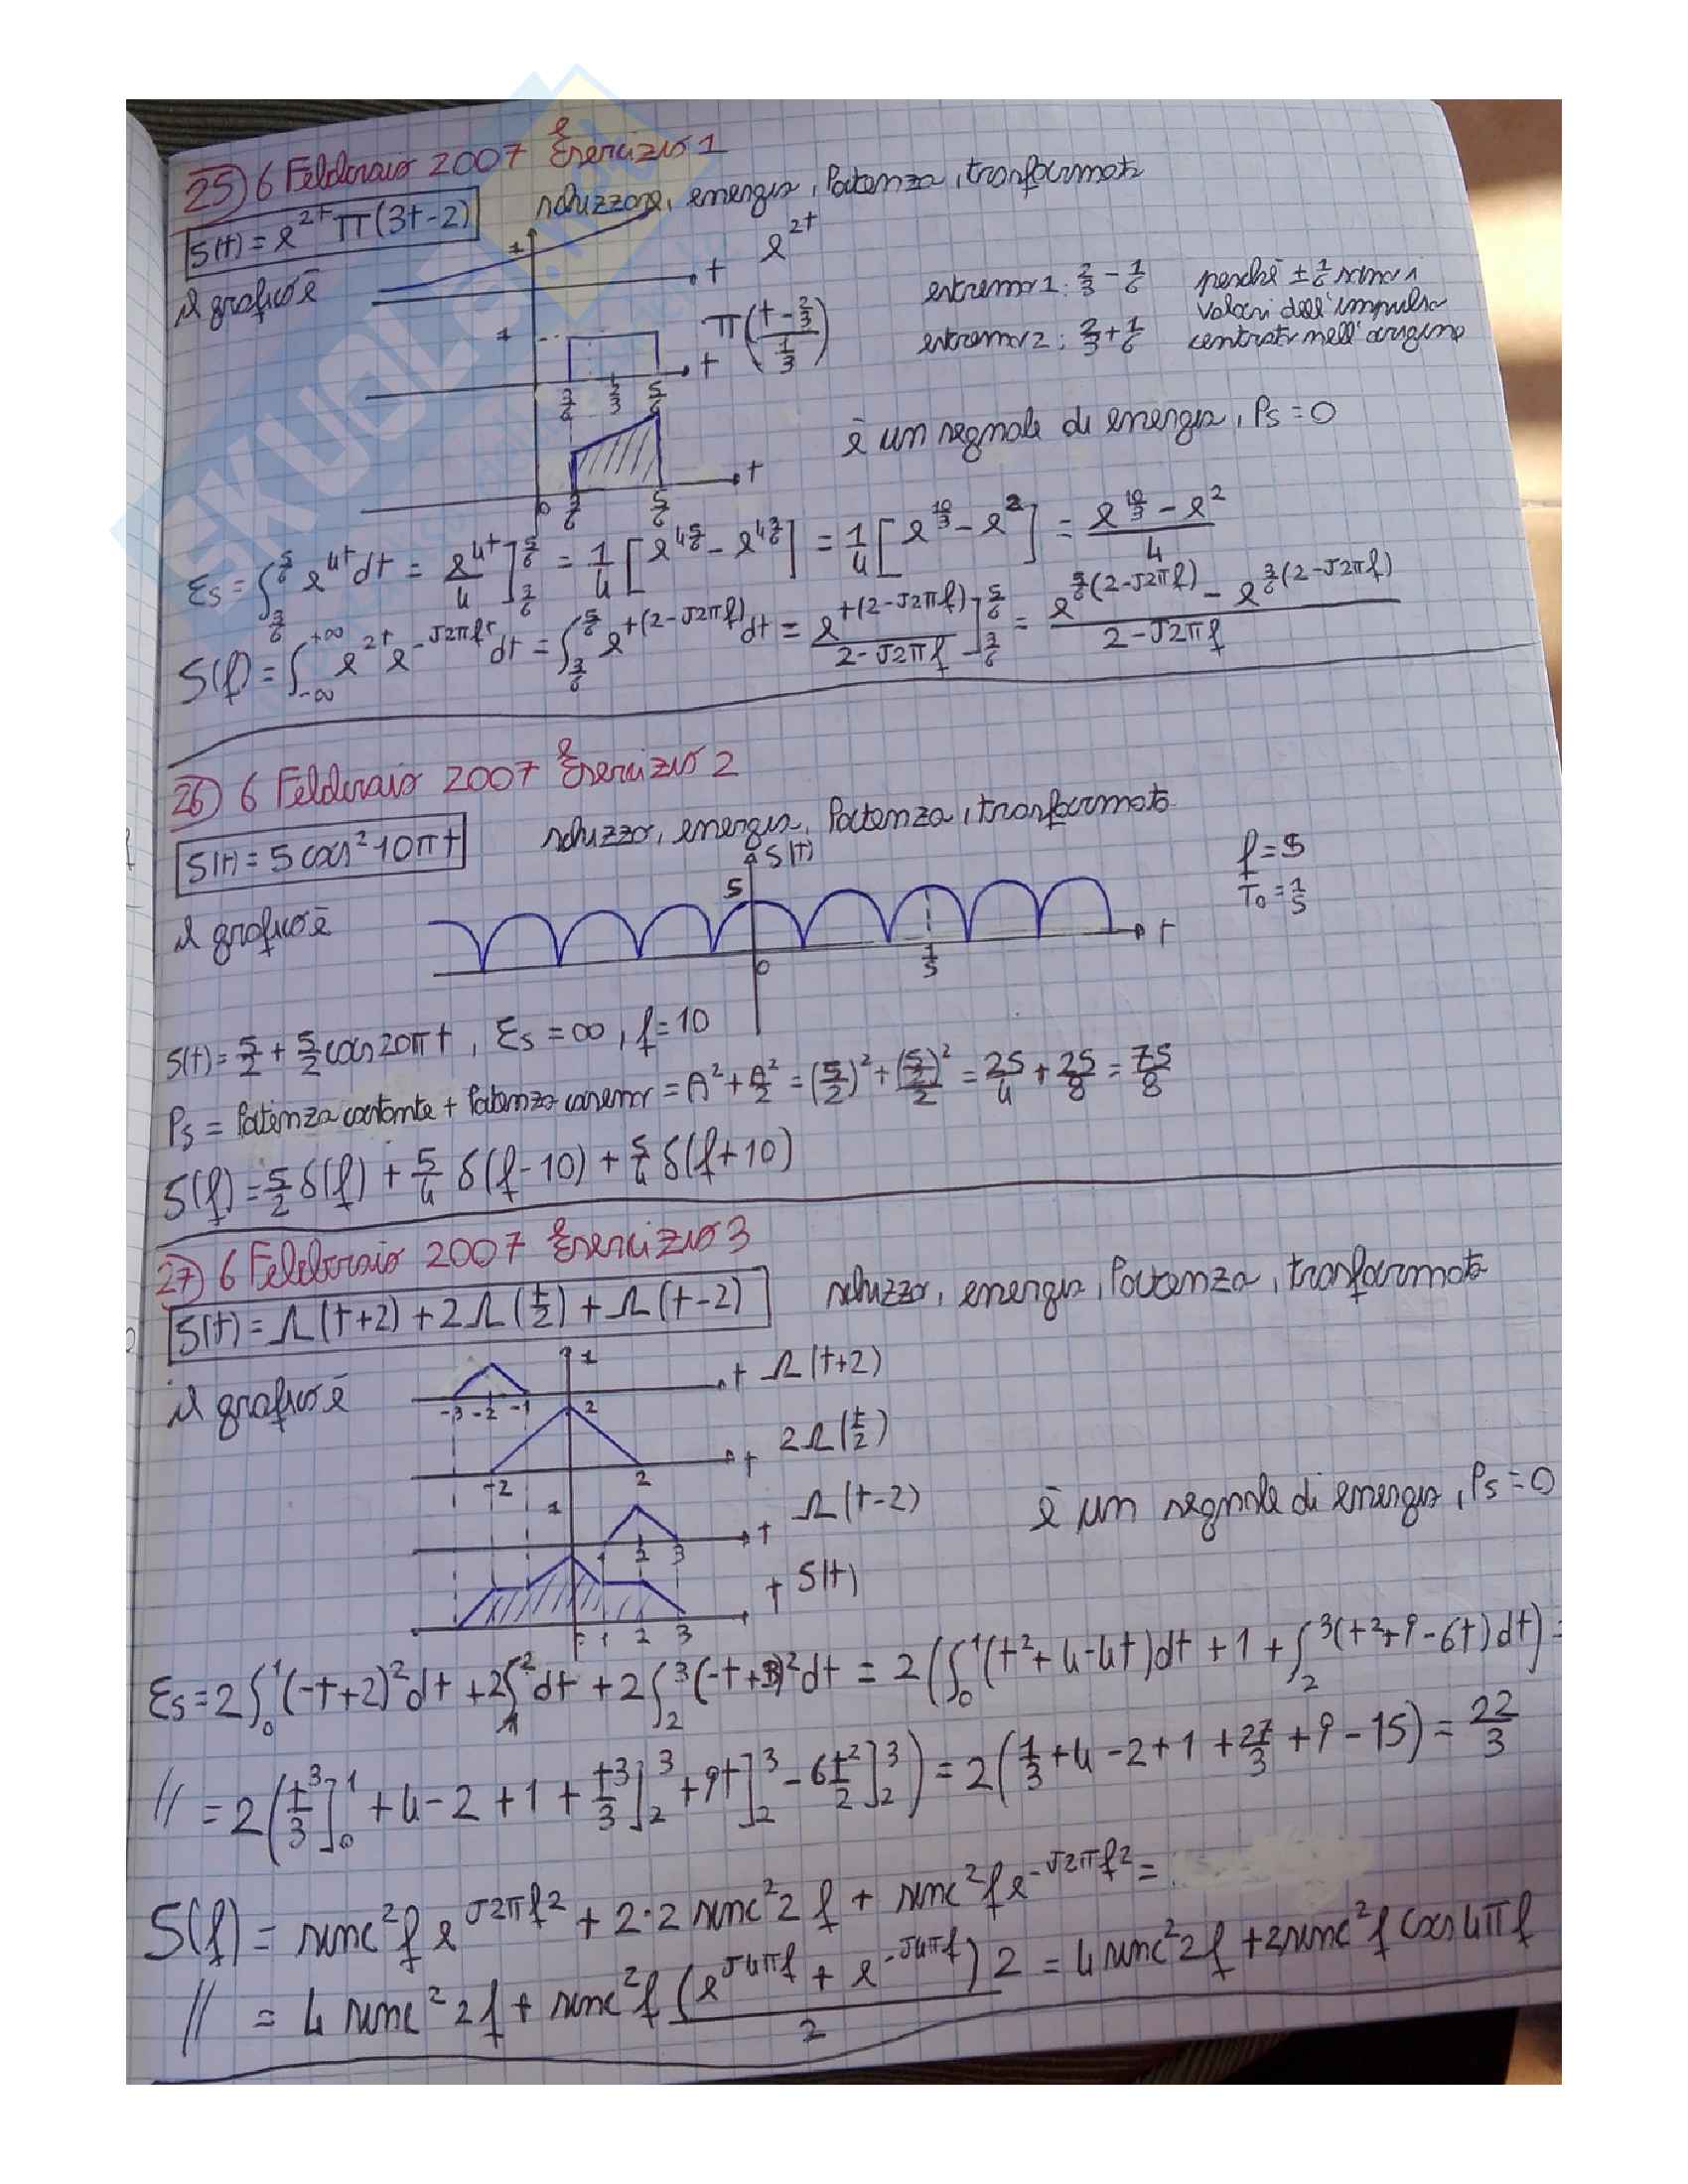 25) 6 Febbraio 2007 Esercizio 1
S(t) = e^{2t} Π(3t-2) schizzare, energia, Potenza, trasformata
il grafico è
1
t
e^{2t}
1
t
Π((t-2/3)/(1/3))
3/6 2/3 5/6
estremo 1: 2/3 - 1/6
estremo 2: 2/3 + 1/6
perché ±1/6 sono i
valori dell'impulso
centrato nell'origine
t
0 3/6 5/6
è un segnale di energia, Ps = 0
Es = ∫_{3/6}^{5/6} e^{4t} dt = e^{4t}/4 ]_{3/6}^{5/6} = 1/4 [e^{4 5/6} - e^{4 3/6}] = 1/4 [e^{10/3} - e^2] = (e^{10/3} - e^2)/4
S(f) = ∫_{-∞}^{+∞} e^{2t} e^{-J2πft} dt = ∫_{3/6}^{5/6} e^{t(2-J2πf)} dt = e^{t(2-J2πf)}/(2-J2πf) ]_{3/6}^{5/6} = (e^{5/6(2-J2πf)} - e^{3/6(2-J2πf)})/(2-J2πf)
26) 6 Febbraio 2007 Esercizio 2
S(t) = 5 cos² 10πt schizzo, energia, Potenza, trasformata
il grafico è
S(t)
5
0 1/5 t
f = 5
T₀ = 1/5
S(t) = 5/2 + 5/2 cos 20πt, Es = ∞, f = 10
Ps = Potenza costante + Potenza coseno = A² + A²/2 = (5/2)² + (5/2)²/2 = 25/4 + 25/8 = 75/8
S(f) = 5/2 δ(f) + 5/4 δ(f-10) + 5/4 δ(f+10)
27) 6 Febbraio 2007 Esercizio 3
S(t) = Λ(t+2) + 2Λ(t/2) + Λ(t-2) schizzo, energia, Potenza, trasformata
il grafico è
1
t Λ(t+2)
-3 -2 -1
2
t 2Λ(t/2)
-2 2
1
t Λ(t-2)
1 2 3
t S(t)
1 2 3
è un segnale di energia, Ps = 0
Es = 2∫_0^1 (-t+2)² dt + 2∫_1^2 dt + 2∫_2^3 (-t+3)² dt = 2(∫_0^1 (t²+4-4t) dt + 1 + ∫_2^3 (t²+9-6t) dt) =
// = 2(t³/3 ]_0^1 + 4 - 2 + 1 + t³/3 ]_2^3 + 9t ]_2^3 - 6 t²/2 ]_2^3) = 2(1/3 + 4 - 2 + 1 + 27/3 + 9 - 15) = 22/3
S(f) = sinc² f e^{J2πf2} + 2·2 sinc² 2f + sinc² f e^{-J2πf2} =
// = 4 sinc² 2f + sinc² f (e^{J4πf} + e^{-J4πf})/2 2 = 4 sinc² 2f + 2 sinc² f cos 4πf